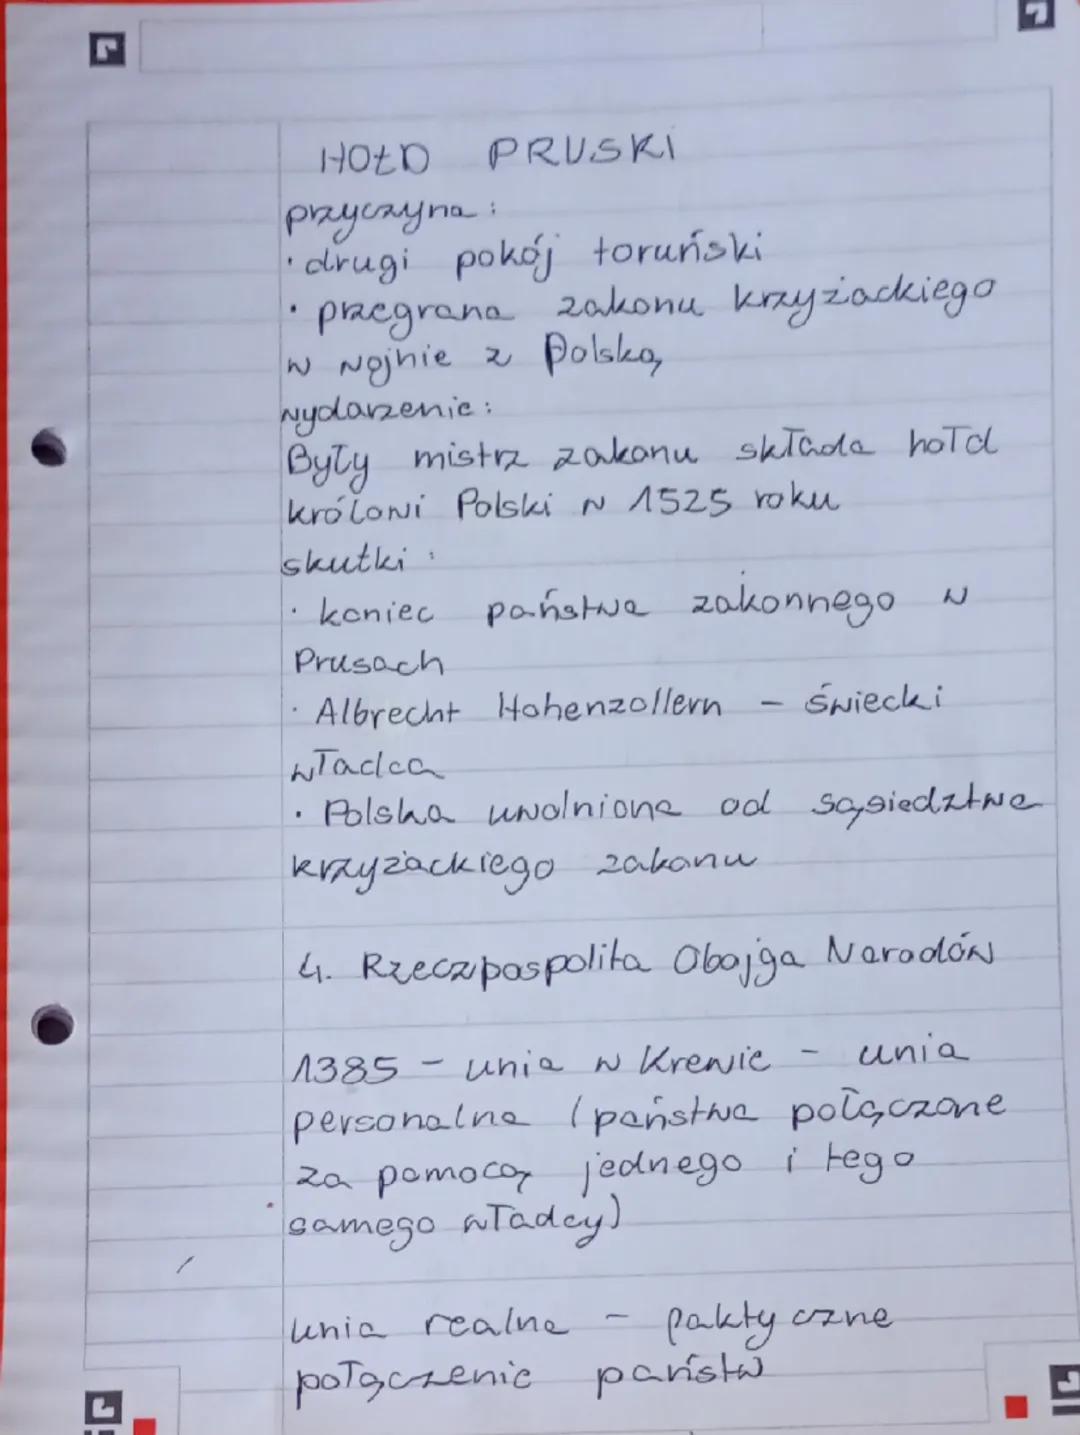 HOŁD PRUSKI
przyczyna:
· drugi pokój toruński
· przegrana zakonu krzyżackiego
w wojnie z Polską
wydarzenie:
Były mistrz zakonu składa hołd
królowi Polski w 1525 roku
skutki:
· koniec państwa zakonnego w
Prusach
· Albrecht Hohenzollern - świecki
władca
· Polska uwolniona od sąsiedztwa
krzyżackiego zakonu
4. Rzeczpospolita Obojga Narodów
1385 - unia w Krewie - unia
personalna (państwa połączone
za pomocą jednego i tego
samego władcy)
unia realna - paktyczne
połączenie państw